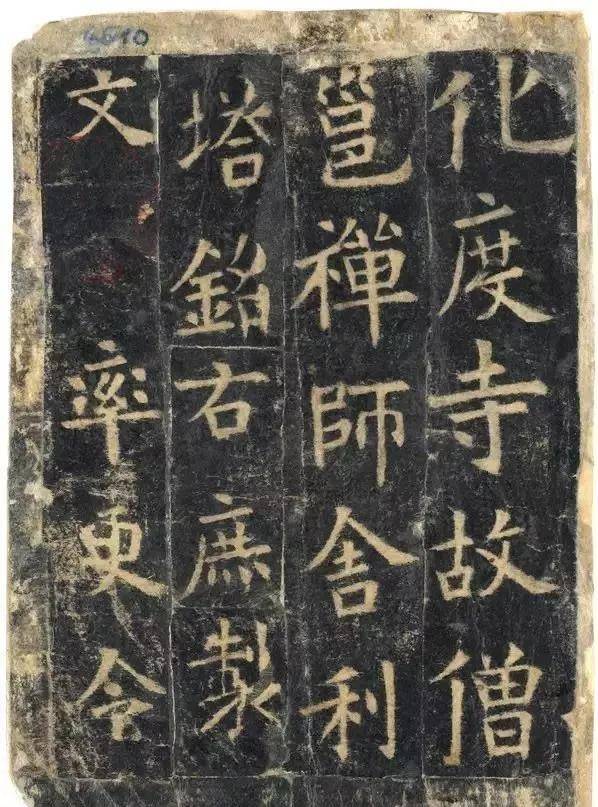 化度寺故僧
邕禪師舍利
塔銘右庶製
文 率更令
4610